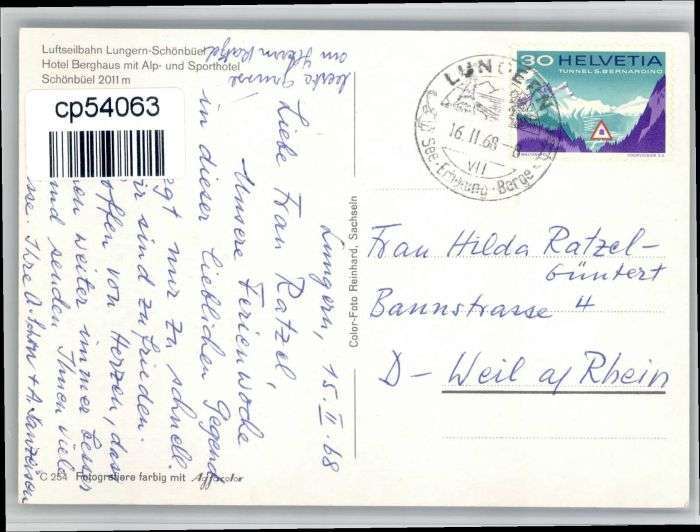 Luftseilbahn Lungern-Schönbüel
Hotel Berghaus mit Alp- und Sporthotel
Schönbüel 2011 m
cp54063
30 HELVETIA
TUNNEL S. BERNARDINO
LUNGERN
16. II. 68 - 8
VII
See · Erholung · Berge
Lungern, 15. II. 68
Liebe Frau Ratzel,
Unsere Ferienwoche
in dieser lieblichen Gegend
gt nur zu schnell.
ir sind zufrieden.
offen von Herzen, dass
on weiter immer besser
und senden Ihnen viele
sse Ihre
beste Grüsse
an Herrn Ratzel
Color-Foto Reinhard, Sachseln
Frau Hilda Ratzel-
Güntert
Bannstrasse 4
D- Weil a/Rhein
C 254 Fotografiere farbig mit Agfacolor